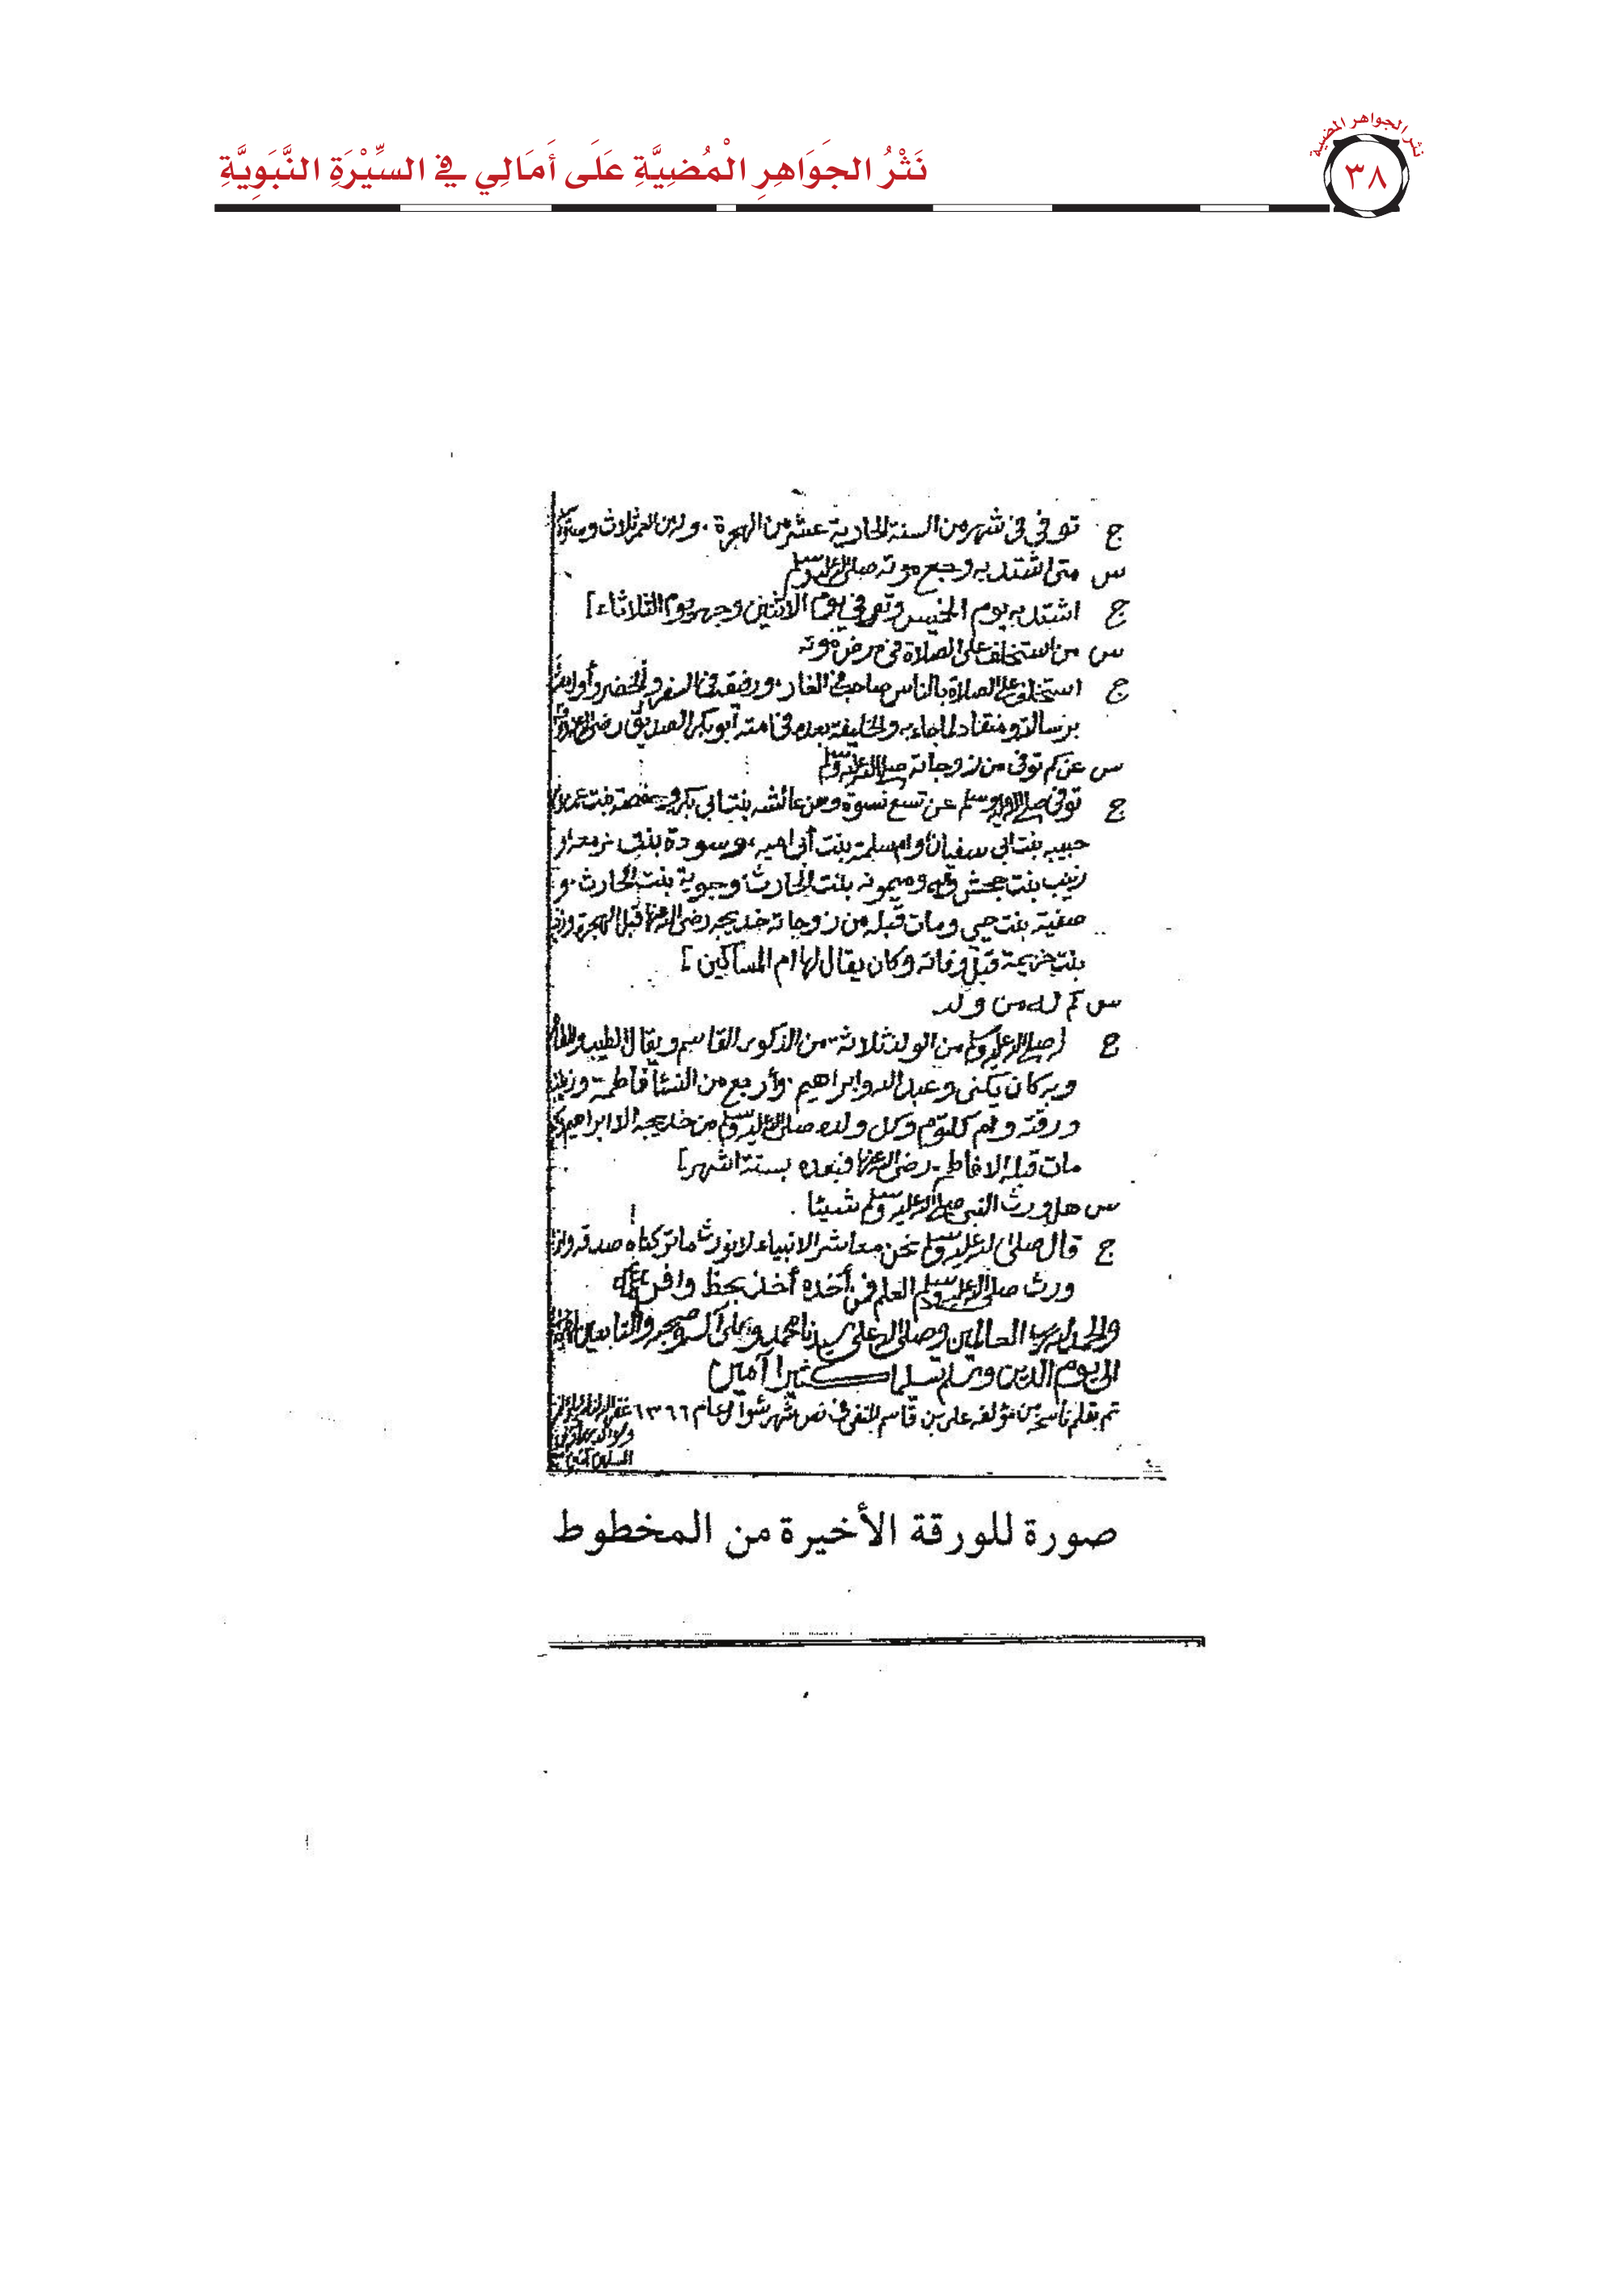 نثر الجواهر المضية
٣٨
نَثْرُ الجَوَاهِرِ الْمُضِيَّةِ عَلَى أَمَالِي فِي السِّيْرَةِ النَّبَوِيَّةِ
ج توفي في شهر من السنة الحادية عشر من الهجرة . وله من العمر ثلاث وستون
س متى اشتد به وجع موته صلى الله عليه وسلم
ج اشتد به يوم الخميس وتوفي يوم الاثنين وجهز يوم الثلاثاء]
س من استخلف على الصلاة في مرض موته
ج استخلف على الصلاة بالناس صاحبه في الغار . ورفيقه في السفر والحضر وأول
برسالته ومنقاد لما جاء به والخليفة بعده في امته أبو بكر الصديق رضي الله
س عن كم توفى من زوجاته صلى الله عليه وسلم
ج توفى صلى الله عليه وسلم عن تسع نسوة وهن عائشه بنت ابي بكر وحفصة بنت عمر
حبيبه بنت ابي سفيان وام سلمة بنت أبي اميه ، وسودة بنت زمعه و
زينب بنت جحش وميمونه بنت الحارث وجويرية بنت الحارث . و
صفية بنت حيي ومات قبله من زوجاته خديجه رضي الله عنها قبل الهجرة
بنت خزيمة قبل وفاته وكان يقال لها ام المساكين ]
س كم له من ولد
ج له صلى الله عليه وسلم من الولد ثلاثة من الذكور القاسم ويقال الطيب
وبه كان يكنى وعبد الله وابراهيم . وأربع من النساء فاطمة وزينب
ورقية وأم كلثوم وكل ولده صلى الله عليه وسلم من خديجه الا ابراهيم
مات قبله الا فاطمة رضي الله عنها فبعده بستة اشهر]
س هل ورث النبي صلى الله عليه وسلم شيئا .
ج قال صلى الله عليه وسلم نحن معاشر الانبياء لا نورث ما تركناه صدقه
ورث صلى الله عليه وسلم العلم فمن أخذه أخذ بحظ وافر
والحمد لله رب العالمين وصلى الله على سيدنا محمد وعلى آله وصحبه والتابعين
الى يوم الدين وسلم تسليما كثيرا آمين]
تم بقلم ناسخه من مؤلفه علي بن قاسم في شهر شوال عام ١٣٩٦ غفر الله له
صورة للورقة الأخيرة من المخطوط